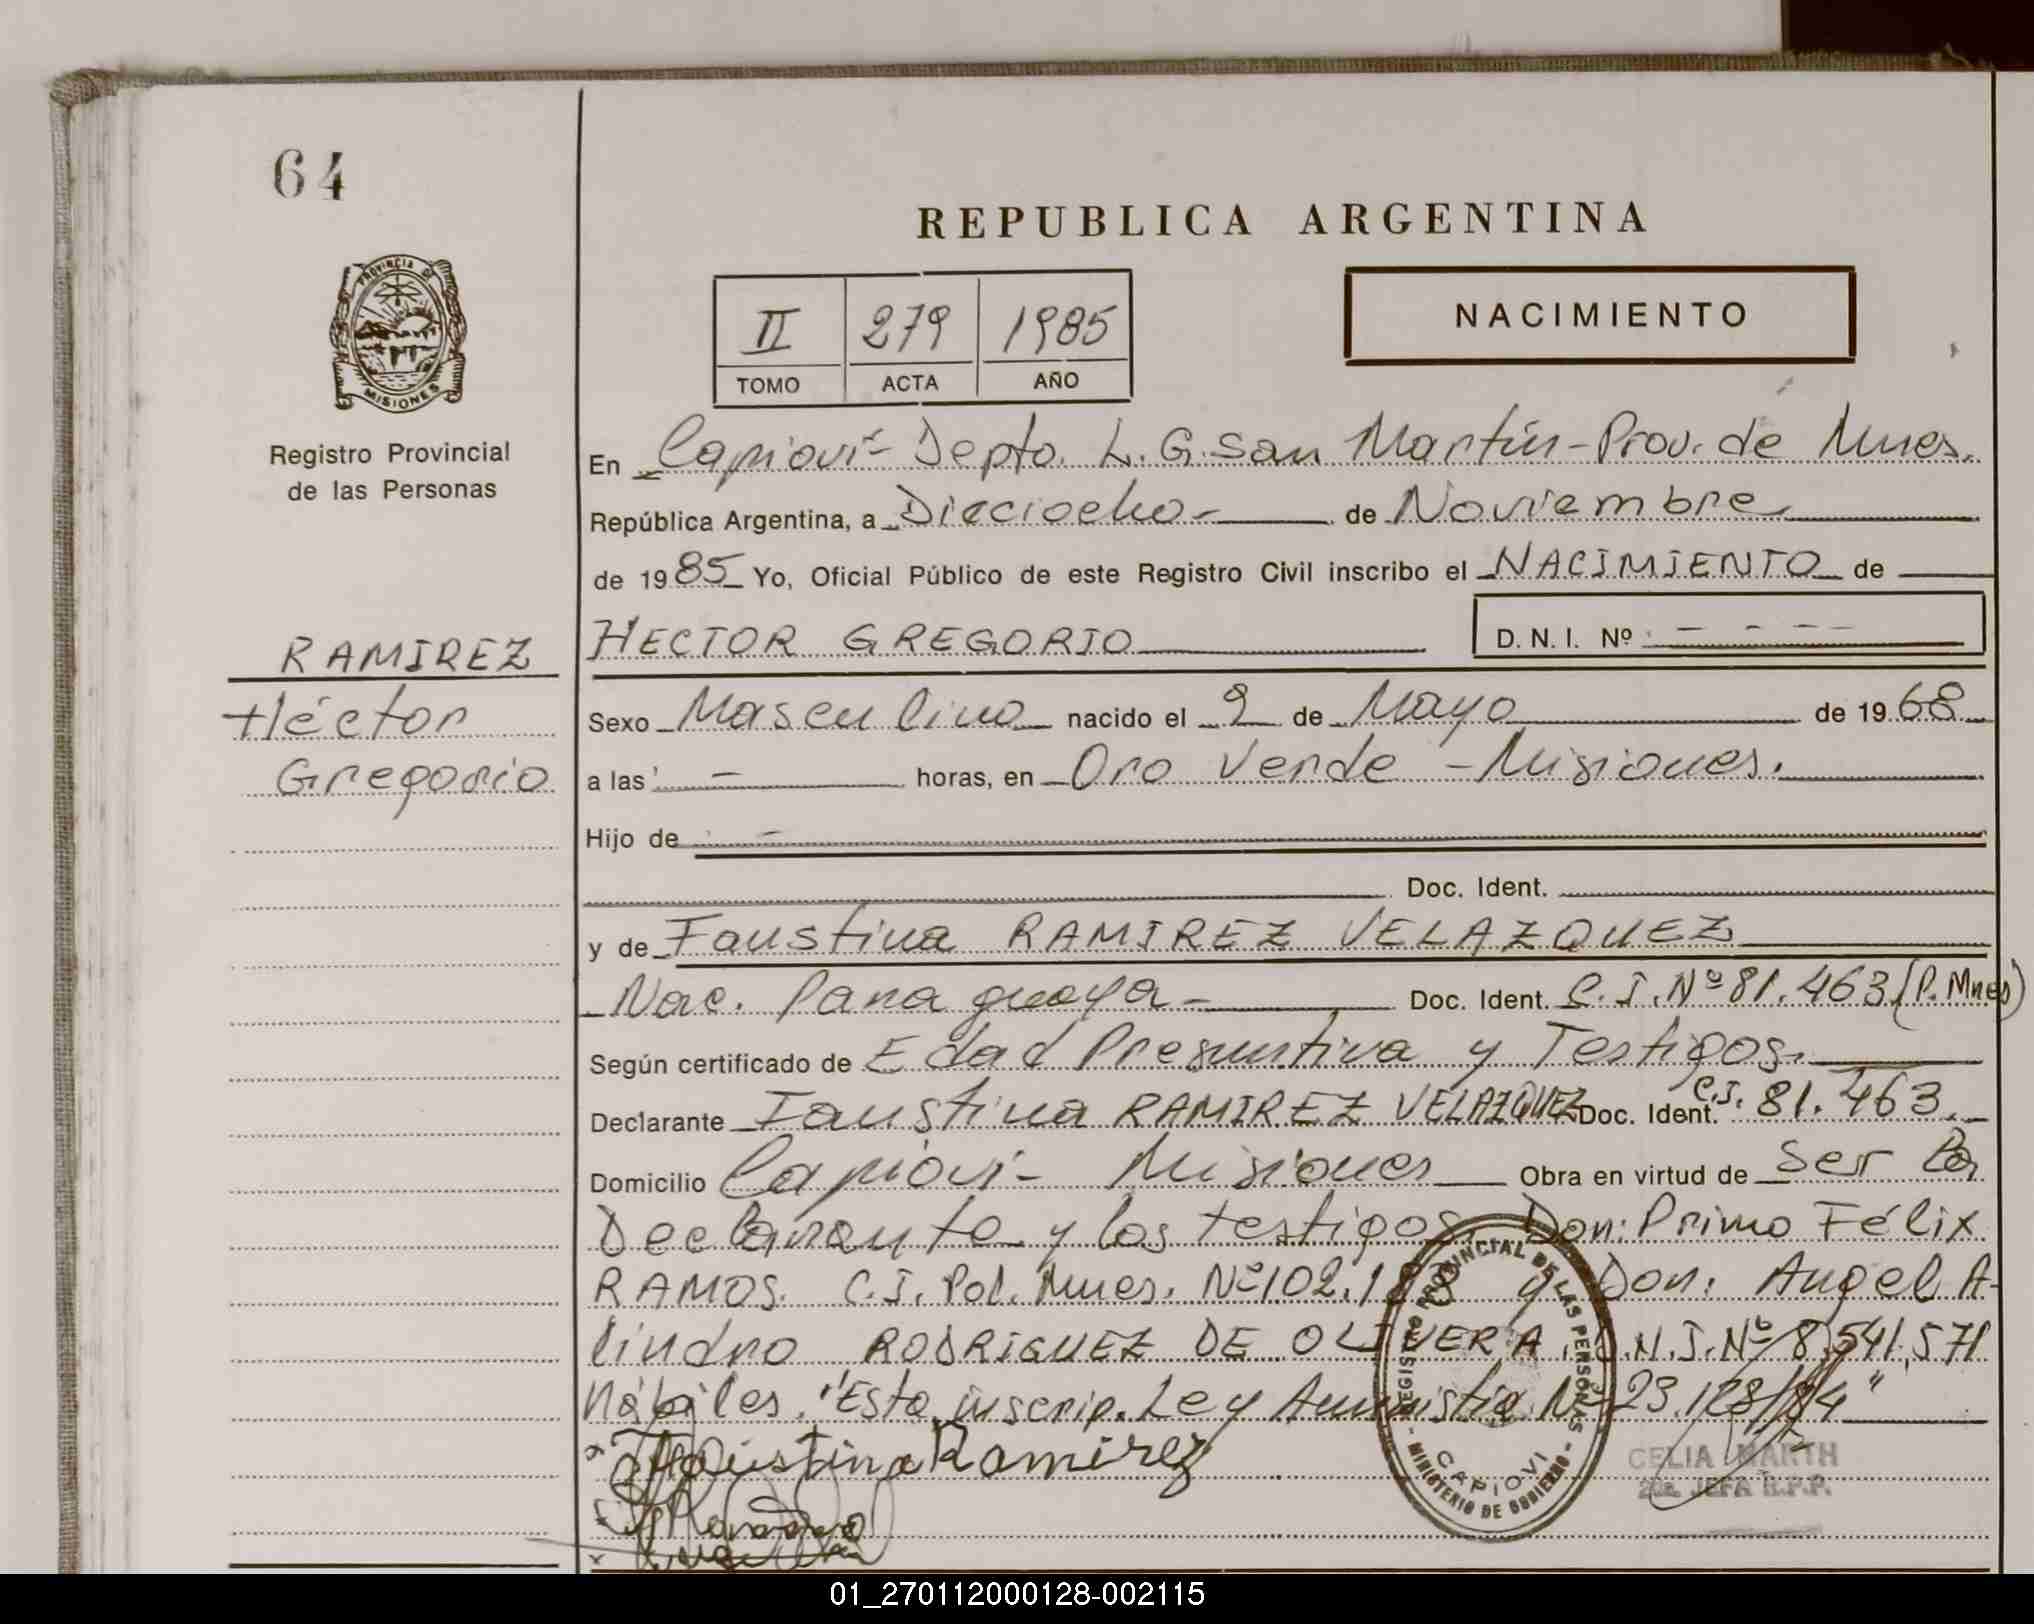 64
REPUBLICA ARGENTINA
PROVINCIA DE
MISIONES
Registro Provincial
de las Personas
II 279 1985
TOMO ACTA AÑO
NACIMIENTO
En Capioví - Depto. L. G. San Martín - Prov. de Mnes.
República Argentina, a Dieciocho - de Noviembre
de 1985 Yo, Oficial Público de este Registro Civil inscribo el NACIMIENTO de
RAMIREZ
Héctor
Gregorio
HECTOR GREGORIO D. N. I. Nº - - - -
Sexo Masculino nacido el 9 de Mayo de 1968
a las - horas, en Oro Verde - Misiones.
Hijo de -
Doc. Ident.
y de Faustina RAMIREZ VELAZQUEZ
Nac. Paraguaya - Doc. Ident. C.I. Nº 81.463 (P. Mnes)
Según certificado de Edad Presuntiva y Testigos.
Declarante Faustina RAMIREZ VELAZQUEZ Doc. Ident. C.I. 81.463.
Domicilio Capioví - Misiones Obra en virtud de ser la
Declarante y los testigos Don: Primo Félix
RAMOS. C.I. Pol. Mnes. Nº 102. y Don: Angel A-
lindro RODRIGUEZ DE OLIVERA, D.N.I. Nº 8.541.571
hábiles. "Esta inscrip. Ley Amnistía Nº 23.128/84"
Faustina Ramirez
REGISTRO PROVINCIAL DE LAS PERSONAS
CAPIOVI
- MINISTERIO DE GOBIERNO -
CELIA MARTH
JEFA R.P.P.
01_270112000128-002115